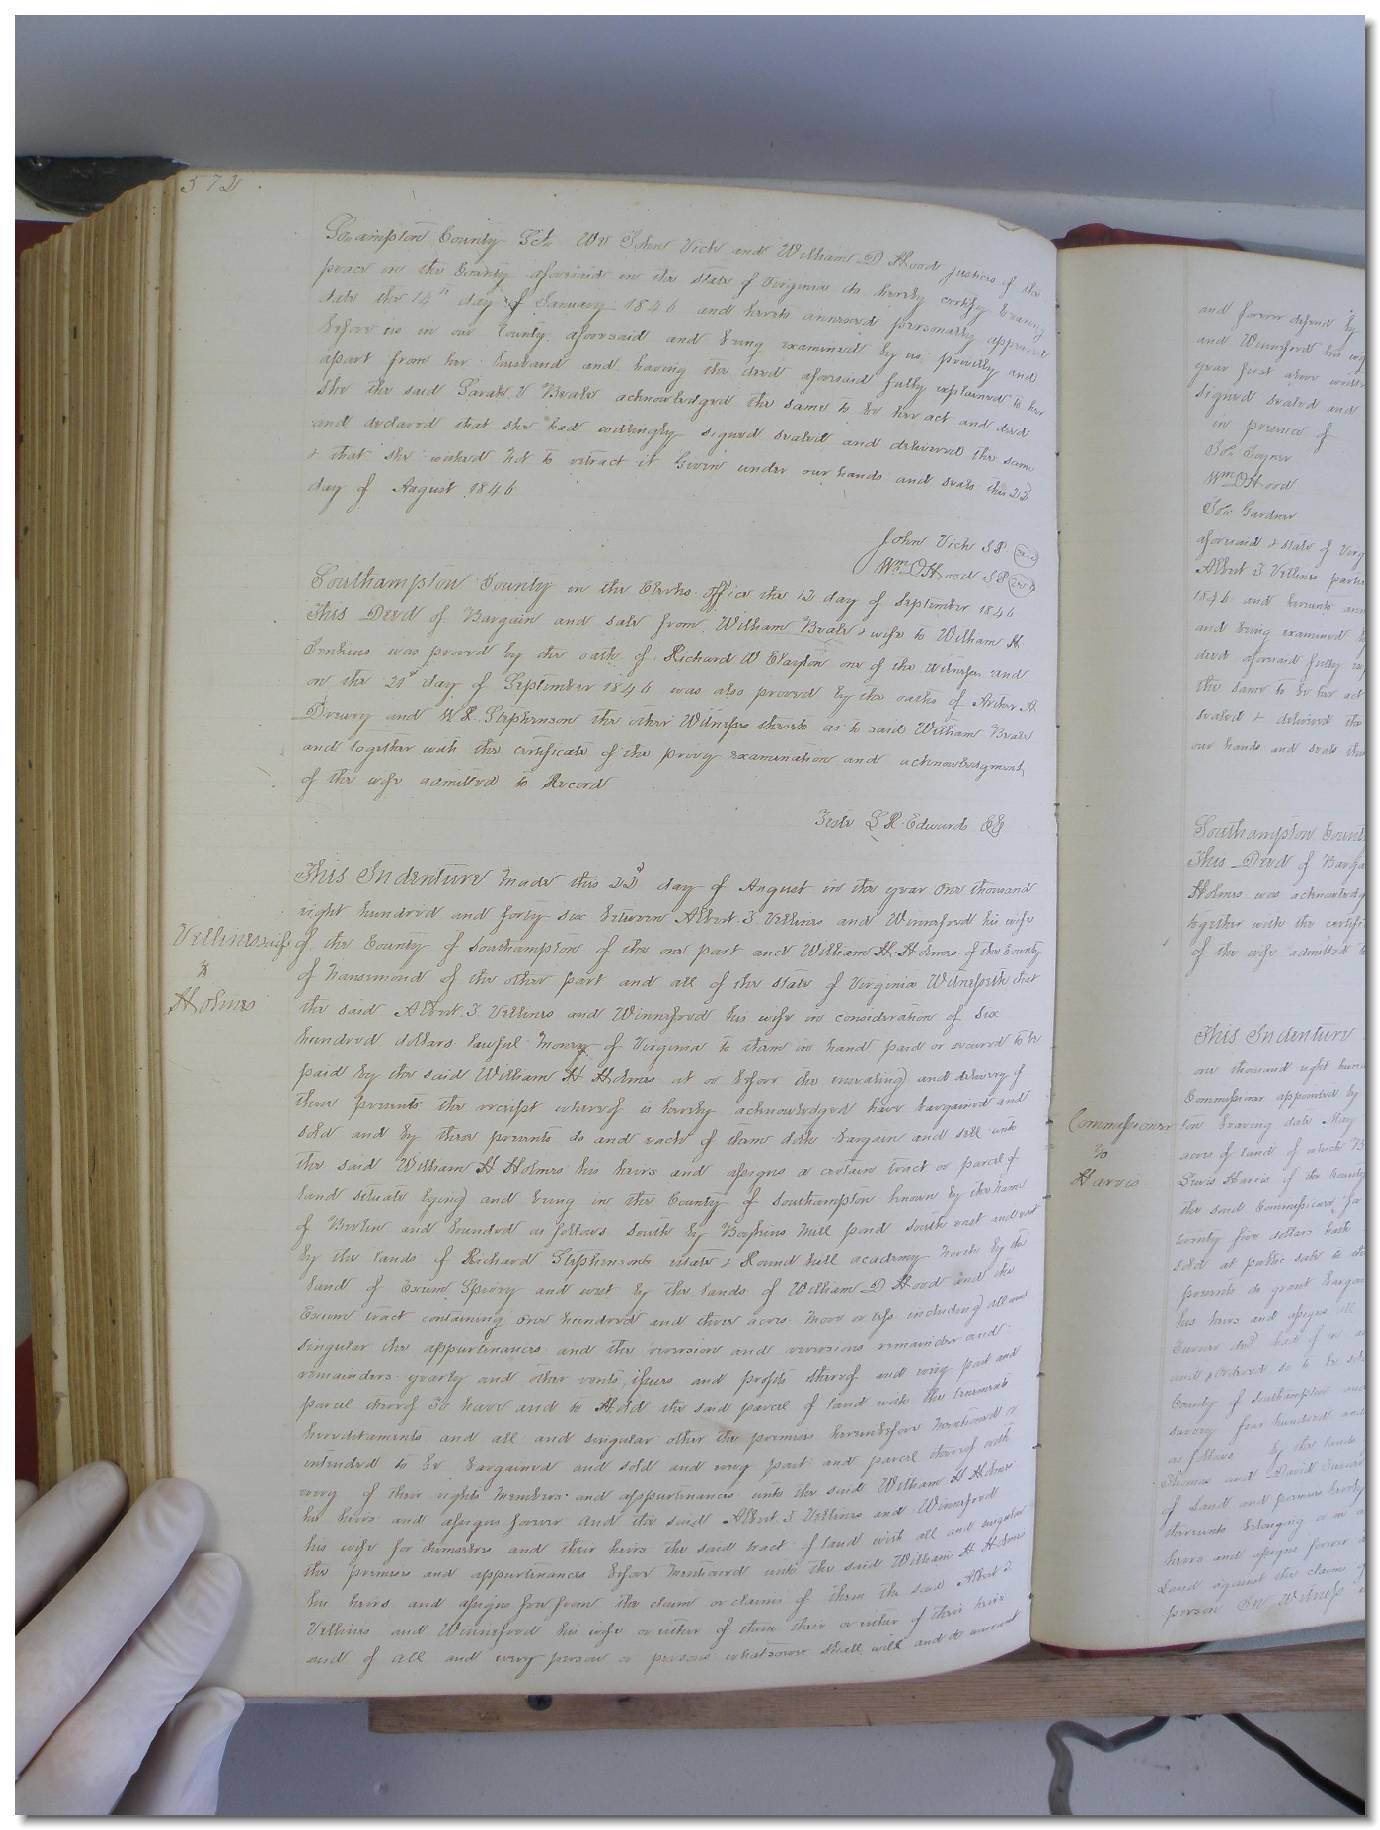 572
Southampton County Sct We John Vick and William D Hood justices of the
peace in the County aforesaid in the State of Virginia do hereby certify bearing
date the 14th day of January 1846 and hereto annexed personally appeared
before us in our County aforesaid and being examined by us privily and
apart from her husband and having the deed aforesaid fully explained to her
She the said Sarah V Beale acknowledged the same to be her act and deed
and declared that she had willingly signed sealed and delivered the same
& that she wished not to retract it Given under our hands and seals this 22
day of August 1846
John Vick JP
Wm D Hood JP
Southampton County in the Clerks office the 12 day of September 1846
This Deed of Bargain and sale from William Beale & wife to William H
Jenkins was proved by the oath of Richard W Clayton one of the Witnesses and
on the 21st day of September 1846 was also proved by the oaths of Arthur H
Drewry and W R Stephenson the other Witnesses thereto as to said William Beale
and together with the certificate of the privy examination and acknowledgment
of the wife admitted to Record
Teste L R Edwards CC
This Indenture made this 22d day of August in the year One thousand
eight hundred and forty six between Albert T Vellines and Winneford his wife
Vellines & wife
of the County of Southampton of the one part and William H Holmes of the County
of Nansemond of the other part and all of the State of Virginia Witnesseth that
Holmes
the said Albert T Vellines and Winneford his wife in consideration of Six
hundred dollars lawful money of Virginia to them in hand paid or secured to be
paid by the said William H Holmes at or before the ensealing and delivery of
these presents the receipt whereof is hereby acknowledged have bargained and
sold and by these presents do and each of them doth bargain and sell unto
the said William H Holmes his heirs and assigns a certain tract or parcel of
land situate lying and being in the County of Southampton known by the name
of Berlin and bounded as follows South by Boykins Mill pond South east and east
by the lands of Richard Stephensons estate & Round hill academy North by the
land of Exum Spivy and west by the lands of William D Hood and the
Exum tract containing One hundred and three acres more or less including all and
singular the appurtenances and the reversion and reversions remainder and
remainders yearly and other rents, issues and profits thereof and every part and
parcel thereof To have and to Hold the said parcel of land with the tenements
hereditaments and all and singular other the premises hereinbefore mentioned or
intended to be bargained and sold and every part and parcel thereof with
every of their rights members and appurtenances unto the said William H Holmes
his heirs and assigns forever and the said Albert T Vellines and Winneford
his wife for themselves and their heirs the said tract of land with all and singular
the premises and appurtenances before mentioned unto the said William H Holmes
his heirs and assigns free from the claim or claims of them the said Albert T
Vellines and Winneford his wife or either of them their or either of their heirs
and of all and every person or persons whatsoever shall will and do warrant
and forever defend by
and Winneford his wife
year first above written
Signed sealed and
in presence of
Jos. Joyner
Wm D Hood
Jos. Gardner
aforesaid & State of Virg
Albert T Vellines parties
1846 and hereunto ann
and being examined
deed aforesaid fully exp
the same to be her act
sealed & delivered the
our hands and seals this
Southampton Count
This Deed of Barga
Holmes was acknowledg
together with the certifi
of the wife admitted to
This Indenture
one thousand eight hun
Commissioner appointed by
Commissioner
ton bearing date May
acres of land of which
Harris
Lewis Harris of the County
the said Commissioner for
twenty five dollars
sold at public sale to
presents do grant bargain
his heirs and assigns all
and ordered so to be sold
County of Southampton and
survey four hundred and
as follows by the lands
Thomas and David
of Land and premises hereby
thereunto belonging or in a
heirs and assigns forever
Land against the claim of
person In Witness